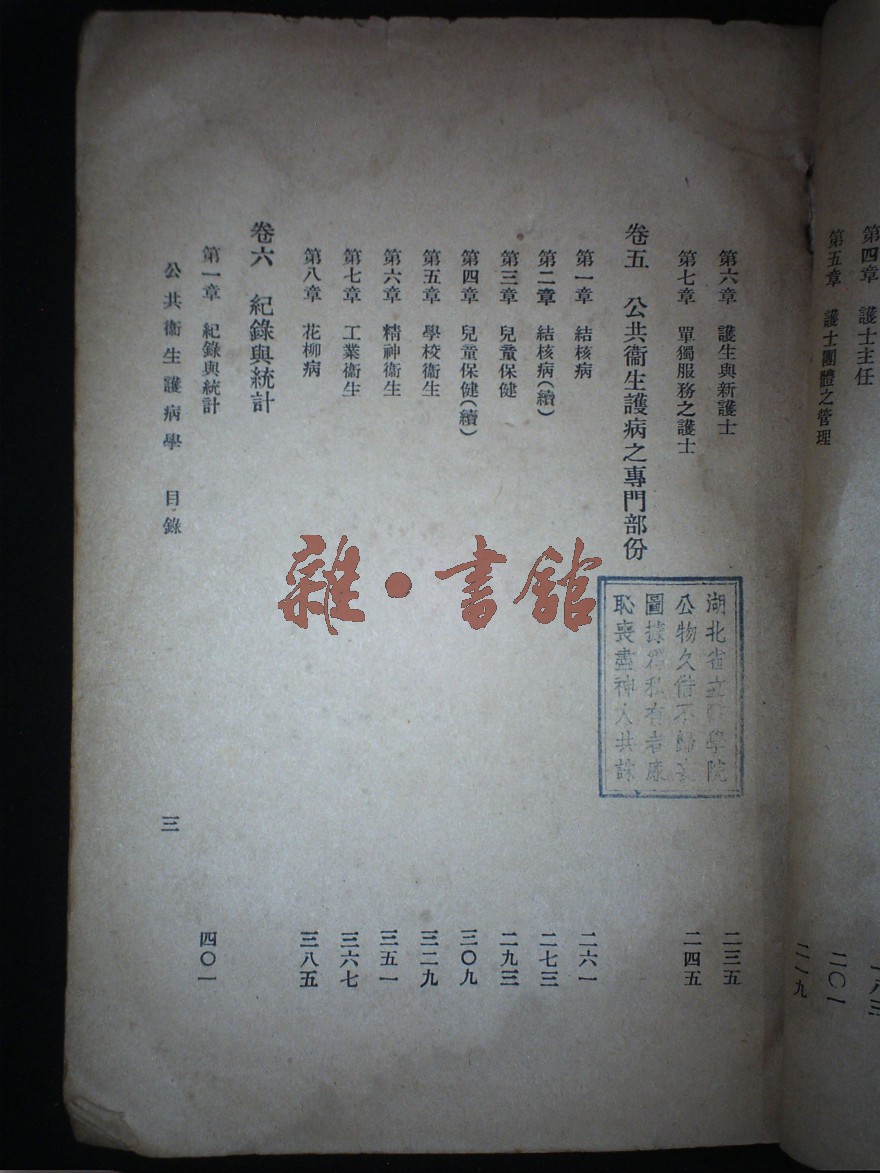 第四章　護士主任
第五章　護士團體之管理　二〇一
二一九
第六章　護生與新護士　二三五
第七章　單獨服務之護士　二四五
卷五　公共衞生護病之專門部份
第一章　結核病　二六一
第二章　結核病(續)　二七三
第三章　兒童保健　二九三
第四章　兒童保健(續)　三〇九
第五章　學校衞生　三二九
第六章　精神衞生　三五一
第七章　工業衞生　三六七
第八章　花柳病　三八五
卷六　紀錄與統計
第一章　紀錄與統計　四〇一
公共衞生護病學　目錄　三
湖北省立醫學院
公物久借不歸
圖據爲私有者廉
恥喪盡神人共誅
雜·書館